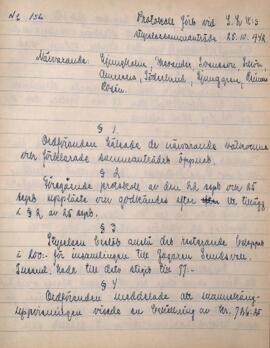 Nr 154 Protokoll förts vid S.L.K:s
styrelsesammanträde 25.10.942
Närvarande: Ljungholm, Svensson
Söderlund, Ljunggren,
Rosén.
§ 1
Ordföranden hälsade de närvarande välkomna
och förklarade sammanträdet öppnat.
§ 2
Föregående protokoll av den 22 sept och 25
sept upplästes och godkändes efter ett tillägg
i § 2 av 25 sept.
§ 3
Styrelsen beslöt anslå det resterande beloppet
i 200:- för insamlingen till Jägaren Sundsvall.
Insaml. hade till dato stigit till 77:-
§ 4
Ordföranden meddelade att
uppvisningen visade en behållning av kr. 726.25